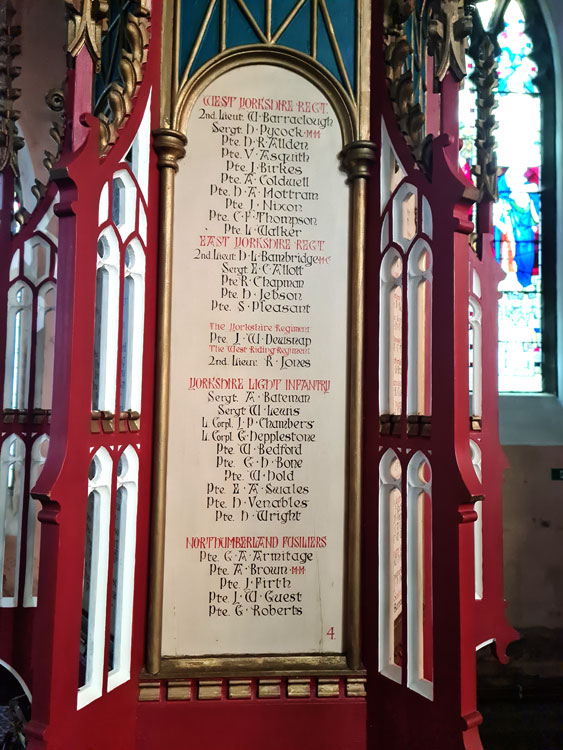 WEST YORKSHIRE REGT.
2nd. Lieut. W. Barraclough
Sergt. H. Pycock. M.M
Pte. H. R. Allden
Pte. V. Asquith
Pte. J. Birkes
Pte. A. Coldwell
Pte. H. A. Mottram
Pte. J. Nixon
Pte. C. F. Thompson
Pte. L. Walker
EAST YORKSHIRE REGT.
2nd. Lieut. H. L. Bambridge M.C
Sergt. E. C. Allott
Pte. R. Chapman
Pte. H. Jebson
Pte. S. Pleasant
The Yorkshire Regiment
Pte. J. W. Dewsnap
The West Riding Regiment
2nd. Lieut. R. Jones
YORKSHIRE LIGHT INFANTRY
Sergt. A. Bateman
Sergt. W. Lewis
L. Corpl. J. P. Chambers
L. Corpl. G. Depplestone
Pte. W. Bedford
Pte. G. H. Bone
Pte. W. Hold
Pte. E. A. Swales
Pte. H. Venables
Pte. H. Wright
NORTHUMBERLAND FUSILIERS
Pte. G. A. Armitage
Pte. A. Brown. M.M
Pte. J. Firth
Pte. J. W. Guest
Pte. G. Roberts
4.